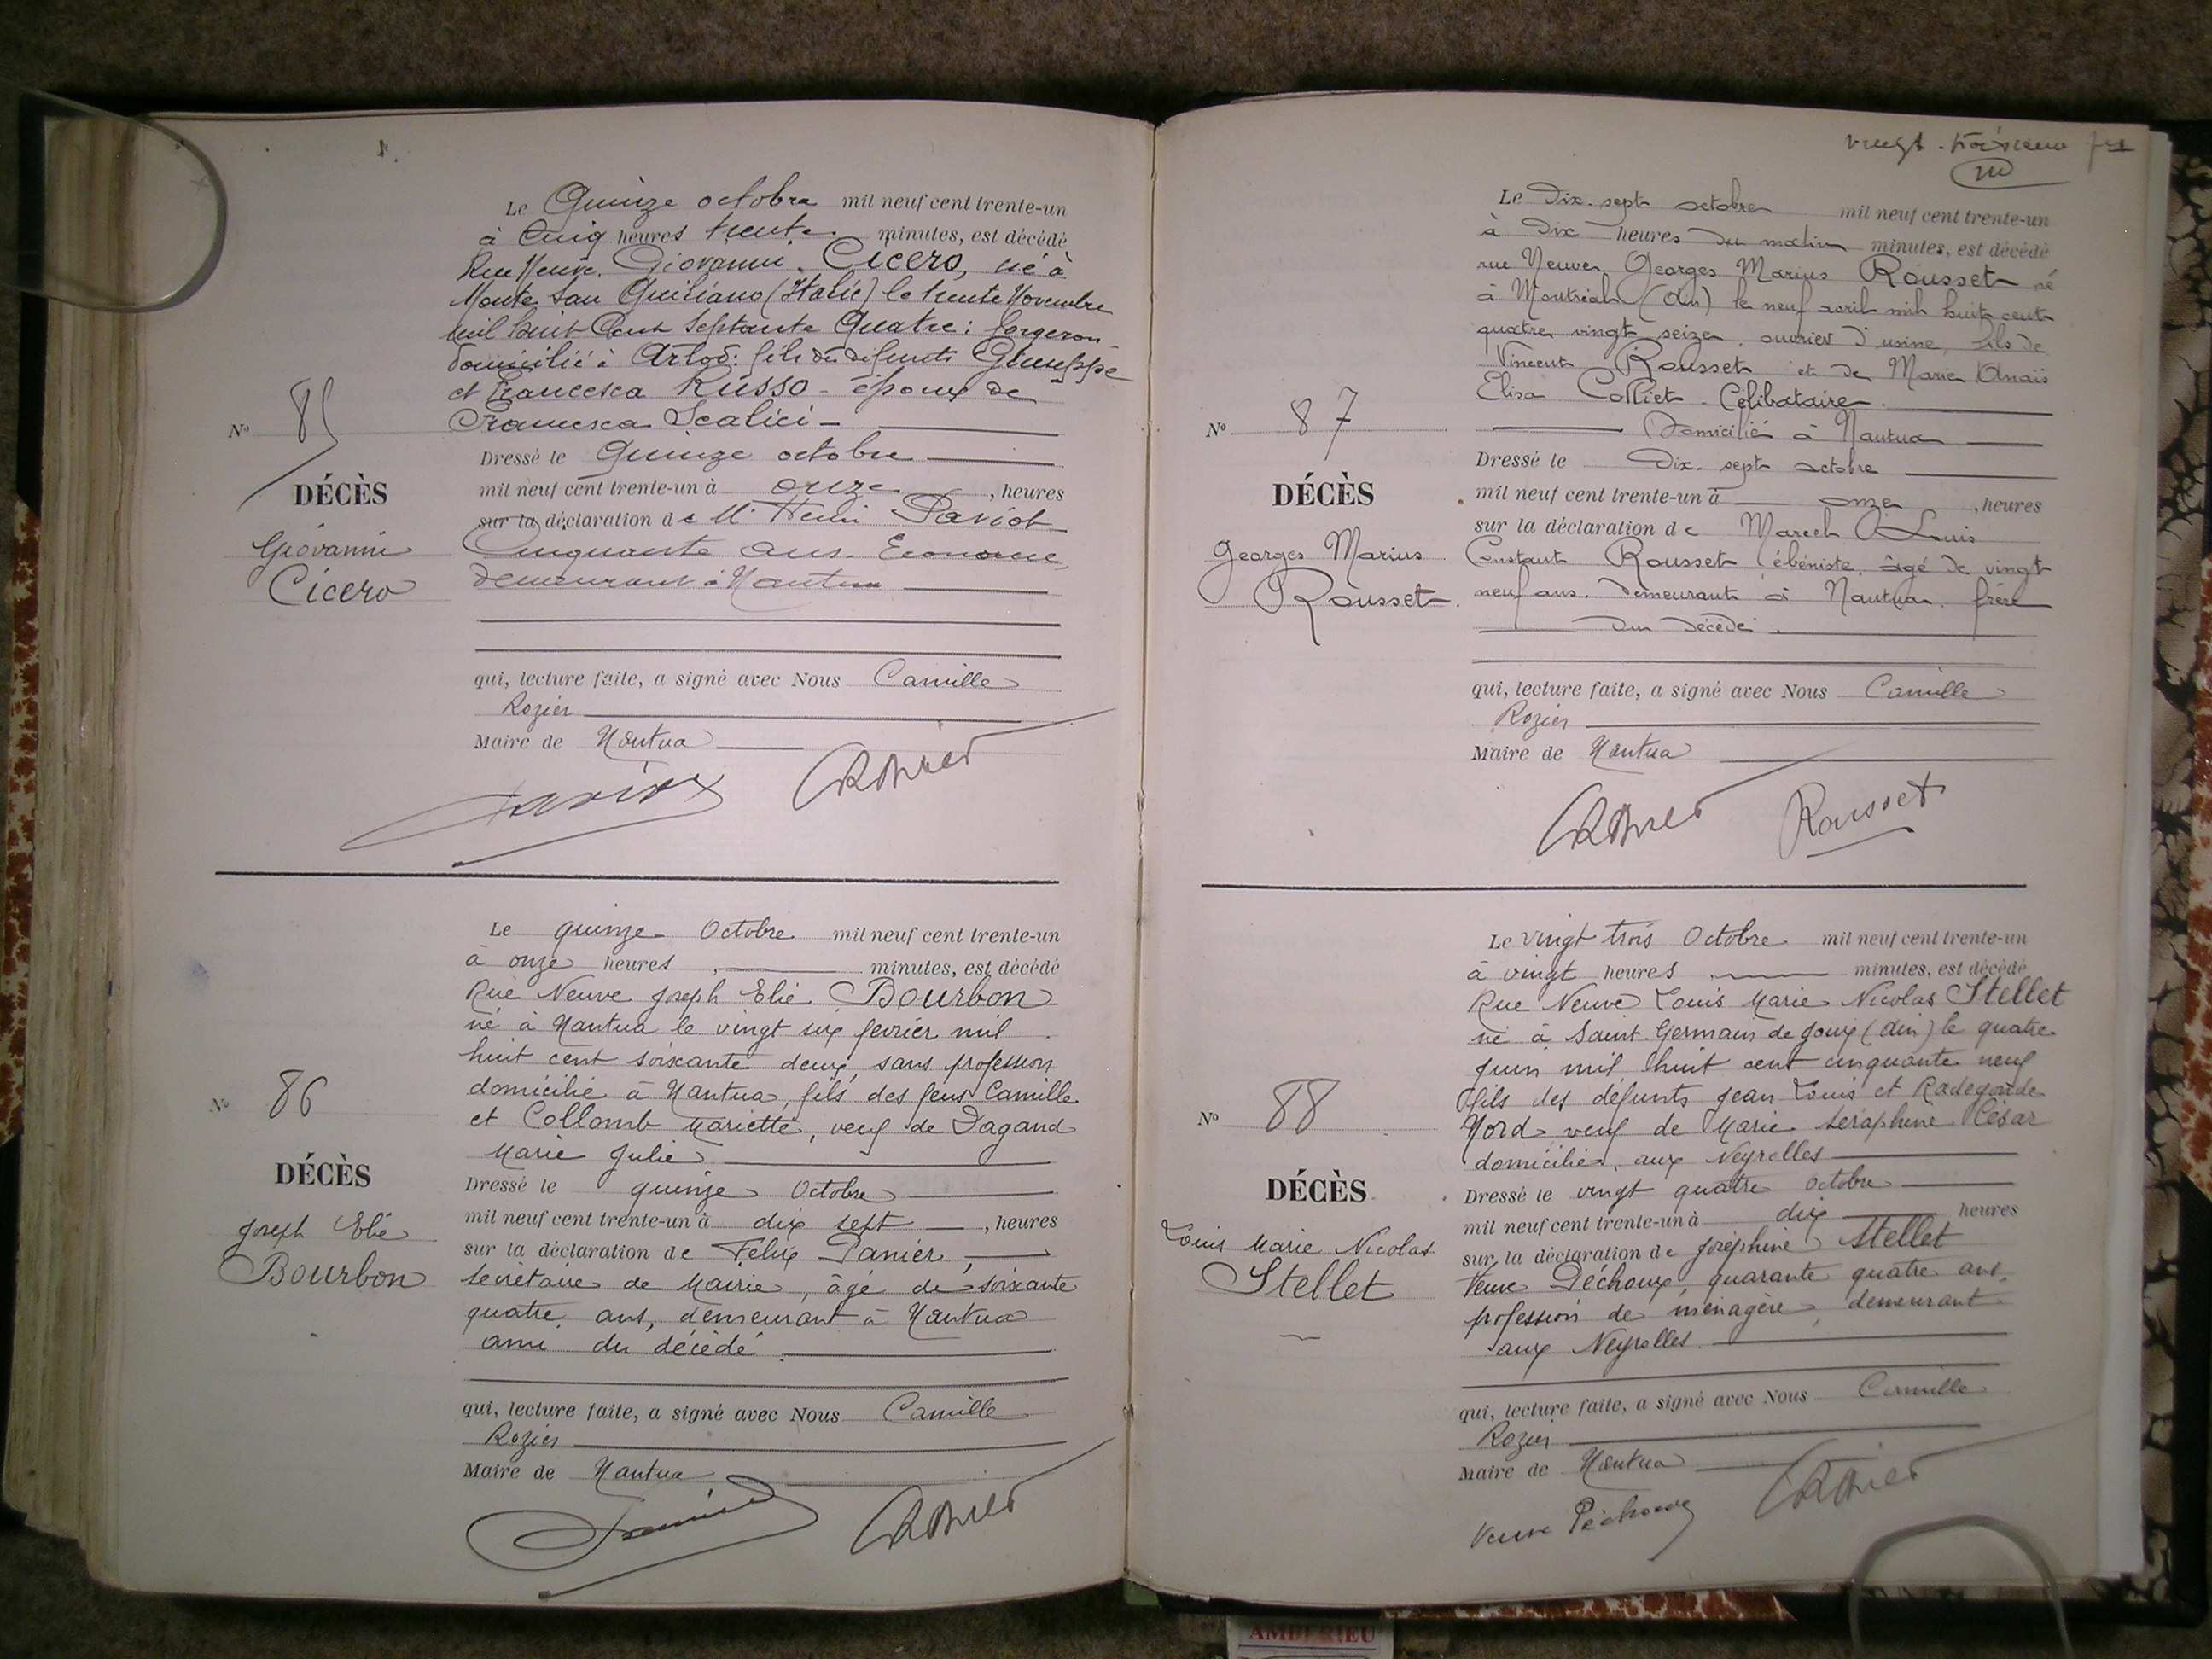 Le Quinze octobre mil neuf cent trente-un
à Cinq heures trente minutes, est décédé
Rue Neuve. Giovanni Cicero, né à
Monte San Guiliano (Italie) le trente Novembre
mil huit Cent Septante Quatre : forgeron
domicilié à Arlod : fils du défunts Giuseppe
et Francesca Russo - époux de
Francesca Scalici -
N° 85
DÉCÈS
Giovanni
Cicero
Dressé le Quinze octobre
mil neuf cent trente-un à onze, heures
sur la déclaration de M. Henri Paviot
Cinquante ans. Econome,
demeurant à Nantua
qui, lecture faite, a signé avec Nous Camille
Rozier
Maire de Nantua
Le quinze Octobre mil neuf cent trente-un
à onze heures, minutes, est décédé
Rue Neuve Joseph Elie Bourbon
né à Nantua le vingt six fevrier mil
huit cent soixante deux, sans profession
domicilié à Nantua, fils des feus Camille
et Collomb Mariette, veuf de Dagand
Marie Julie
N° 86
DÉCÈS
Joseph Elie
Bourbon
Dressé le quinze Octobre
mil neuf cent trente-un à dix sept, heures
sur la déclaration de Félix Panier,
secrétaire de Mairie, âgé de soixante
quatre ans, demeurant à Nantua
ami du décédé
qui, lecture faite, a signé avec Nous Camille
Rozier
Maire de Nantua
vingt-troisième
Le Dix-sept octobre mil neuf cent trente-un
à Dix heures du matin minutes, est décédé
rue Neuve Georges Marius Rousset né
à Montréal (Ain) le neuf avril mil huit cent
quatre vingt seize, ouvrier d'usine, fils de
Vincent Rousset et de Marie Anaïs
Elisa Colliet - Célibataire
Domicilié à Nantua
N° 87
DÉCÈS
Georges Marius
Rousset
Dressé le Dix-sept octobre
mil neuf cent trente-un à onze, heures
sur la déclaration de Marcel Louis
Constant Rousset ébéniste, âgé de vingt
neuf ans. Demeurant à Nantua. frère
du décédé.
qui, lecture faite, a signé avec Nous Camille
Rozier
Maire de Nantua
Rousset
Le vingt trois Octobre mil neuf cent trente-un
à vingt heures, minutes, est décédé
Rue Neuve Louis Marie Nicolas Stellet
né à Saint-Germain de Joux (Ain) le quatre
Juin mil huit cent cinquante neuf
fils des défunts Jean Louis et Radegonde
Nord veuf de Marie Séraphine César
domicilié, aux Neyrolles
N° 88
DÉCÈS
Louis Marie Nicolas
Stellet
Dressé le vingt quatre octobre
mil neuf cent trente-un à dix heures
sur la déclaration de Joséphine Stellet
Veuve Péchoux, quarante quatre ans,
profession de ménagère, demeurant
aux Neyrolles.
qui, lecture faite, a signé avec Nous Camille
Rozier
Maire de Nantua
Veuve Péchoux